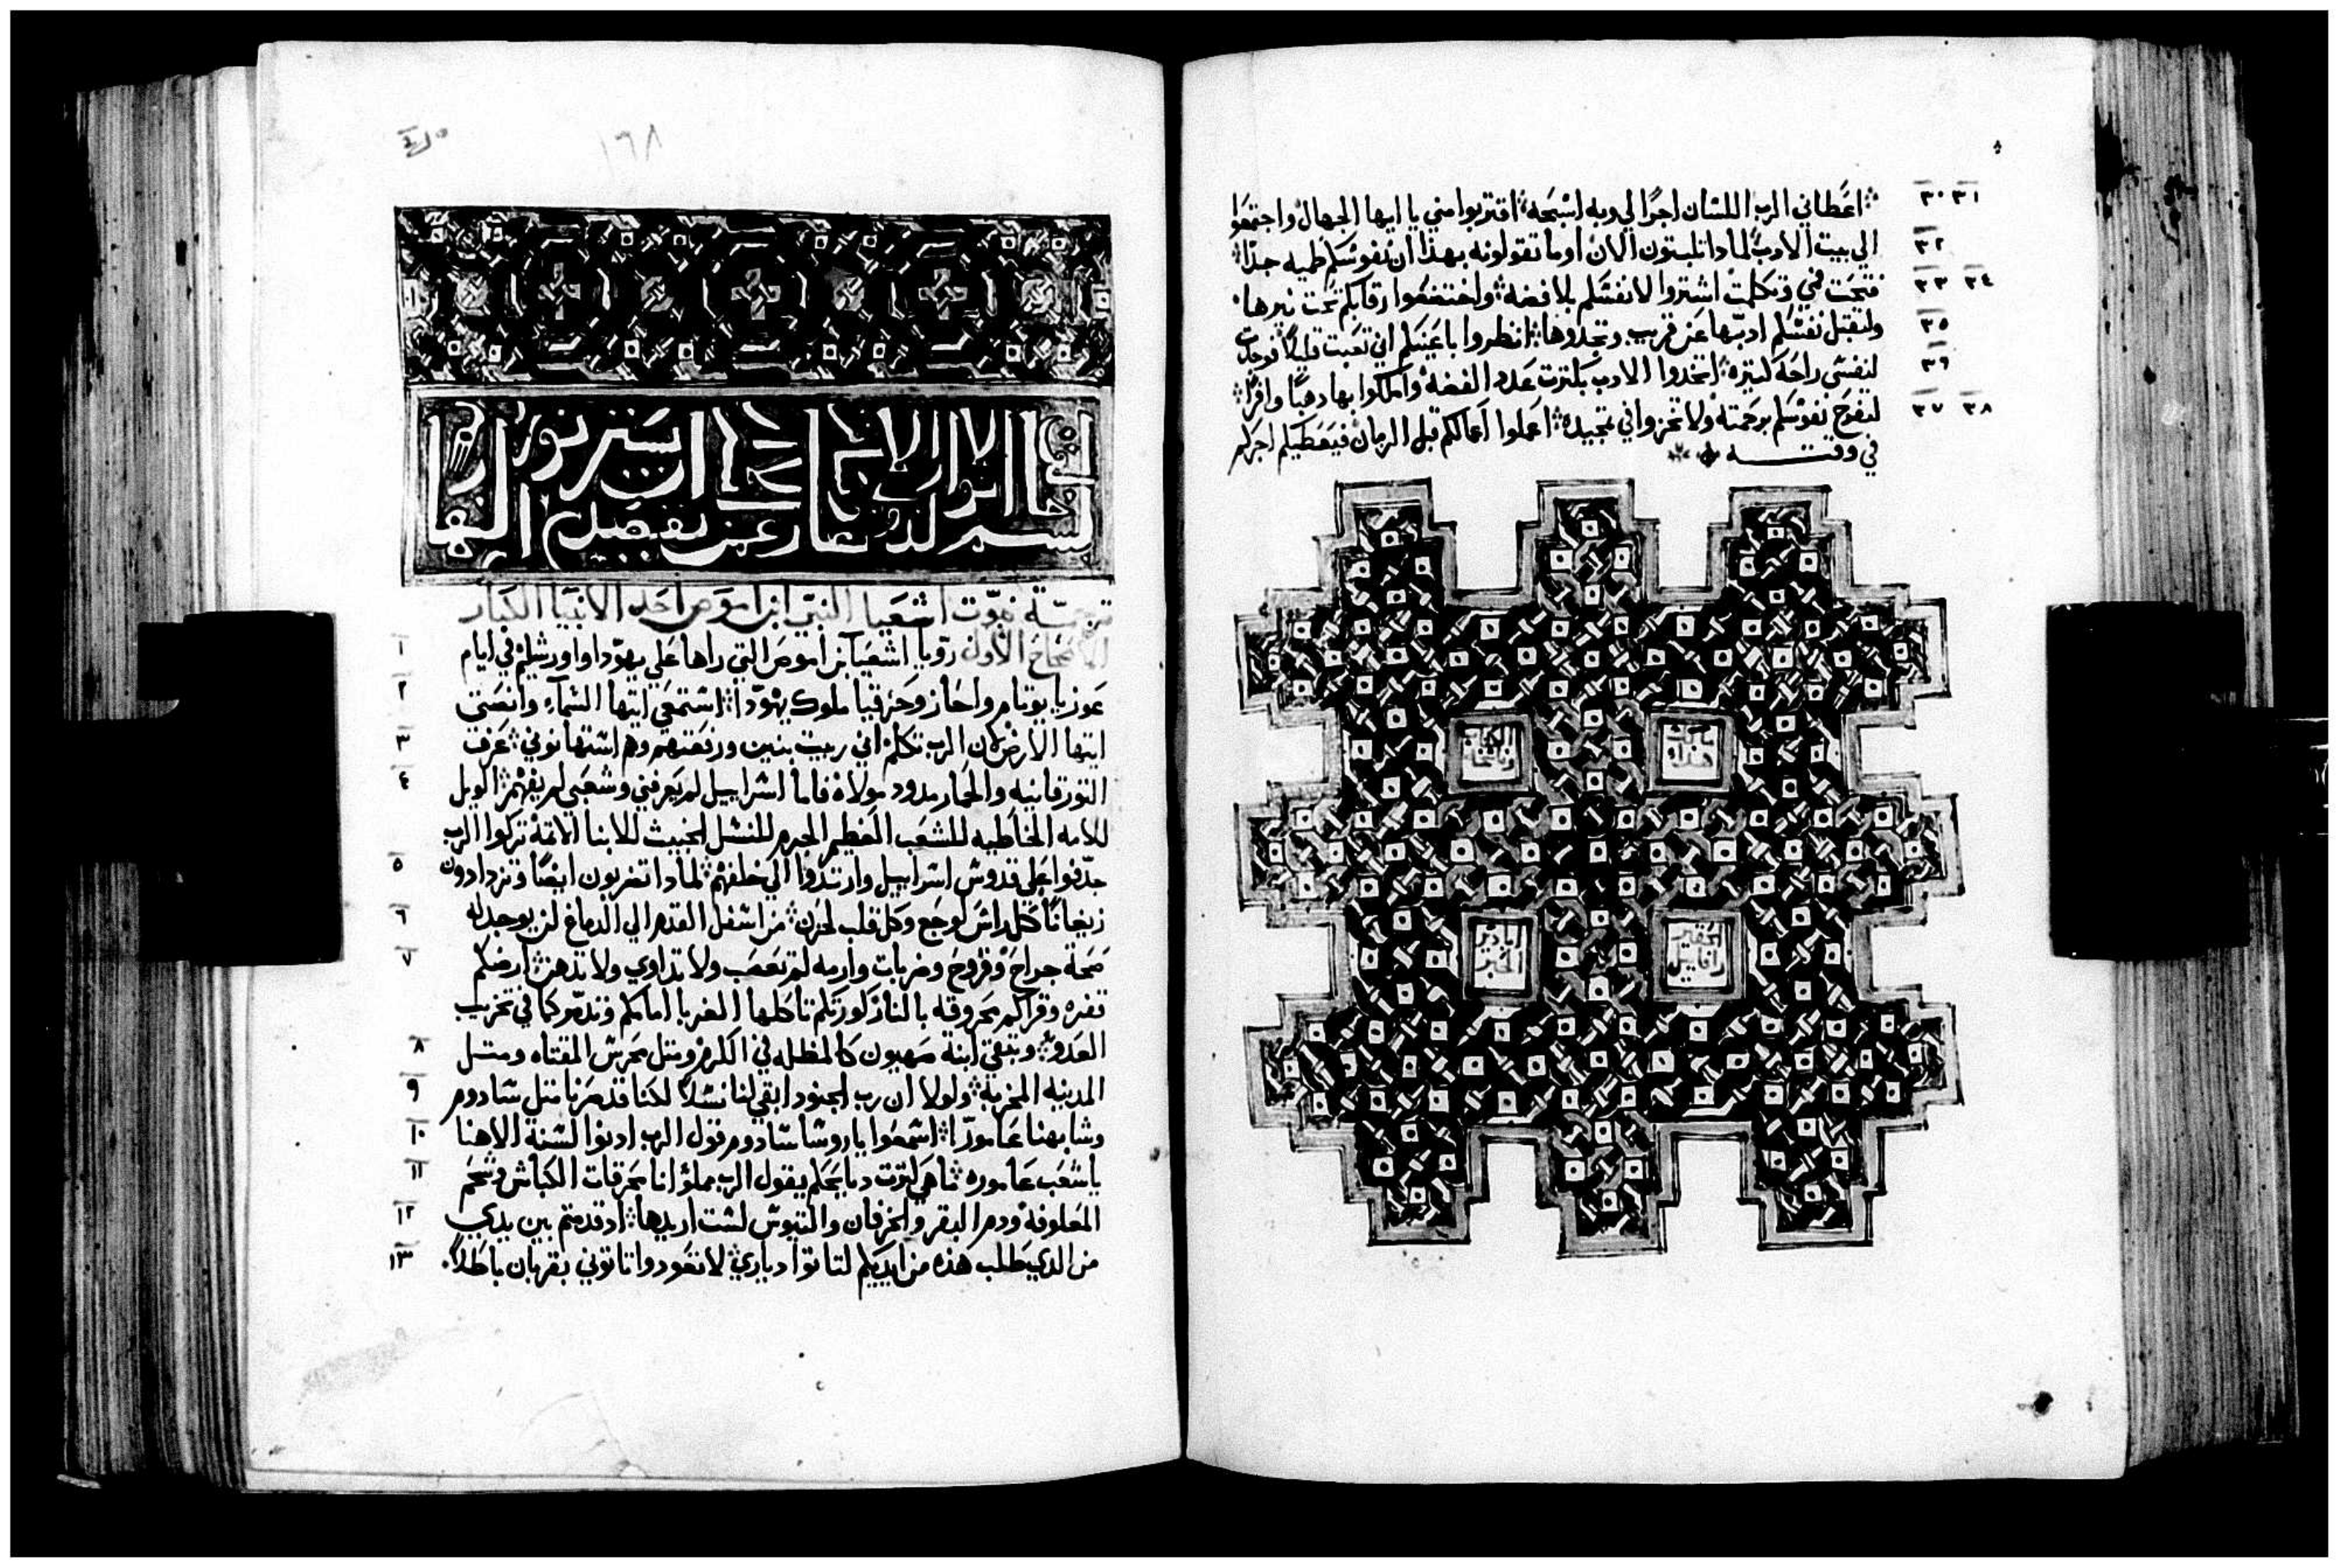 ٨
٣٠ ٣١ اعطاني الرب اللسان اجرًا لي وبه اسبحه اقتربوا مني يا ايها الجهال واجتمعوا
٣٢ الي بيت الادب لمادا تلبتون الان اوما تقولونه بهذا ان نفوسكم ظميه جدًا
٣٣ ٣٤ فتحت في وتكلمت اشتروا لانفسكم بلا فضه واخضعوا رقابكم تحت نيرها
٣٥ ولتقبل نفسكم ادبها عن قريب وتجدوها انظروا باعينكم اني تعبت قليلًا فوجدت
٣٦ لنفسي راحة كتيره اتخدوا الادب بكترت عدد الفضه واملكوا بها دهبًا وافرًا
٣٧ ٣٨ لتفرح نفوسكم برحمته ولا تخزوا في تمجيده اعملوا اعمالكم قبل الزمان فيعطيكم اجركم
في وقته
الحقير
رافاييل
١٦٨
ترجمة نبوّت اشعيا النبي ابن اموص احد الانبيا الكبار
١ الاصحاح الاول رويا اشعيا بن اموص التي راها علي يهودا واورشليم في ايام
٢ عوزيا يوتام واحاز وحزقيا ملوك يهودا استمعي ايتها السماء وانصتي
٣ ايتها الارض لان الرب تكلم اني ربيت بنين ورفعتهم وهم استهانوني عرفت
٤ التور قانيه والحمار مدود مولاه فاما اسراييل لم يعرفني وشعبي لم يفهم الويل
للامه الخاطيه للشعب العظيم الجرم للنسل الخبيث للابنا الاتمة تركوا الرب
٥ جدفوا علي قدوس اسراييل وارتدوا الي خلفهم لمادا تضربون ايضًا وتزدادون
٦ زيغانًا كل راس لوجع وكل قلب لحزن من اسفل القدم الي الدماغ لن يوجد له
٧ صحة جراح وقروح وضربات وارمه لم تعصب ولا تداوي ولا تدهن ارضكم
قفره وقراكم محروقه بالنار كورتكم تاكلها الغربا امامكم وتدمر كما في تخريب
٨ العدو وتبقي ابنة صهيون كالمظله في الكرم ومتل محرس المقتاه ومتل
٩ المدينه المخربة ولولا ان رب الجنود ابقي لنا نسلًا لكنا قد صرنا متل سادوم
١٠ وشابهنا عامورا اسمعوا يا روسا سادوم قول الرب ادنوا لسنة الاهنا
١١ يا شعب عاموره ما هي كترت دبايحكم يقول الرب مملؤ انا محرقات الكباش وشحم
١٢ المعلوفة ودم البقر والخرفان والتيوس لست اريدها اد قدمتم بين يدي
١٣ من الدي طلب هذه من ايديكم لتاتوا دياري لا تعودوا تاتوني بقربان باطلًا